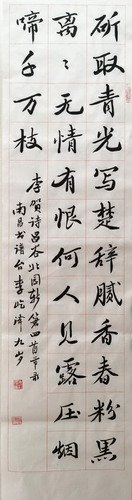 斫取青光写楚辞腻香春粉黑
离〻无情有恨何人见露压烟
啼千万枝
李贺诗昌谷北园新笋四首其二
南昌书谱台李屹泽九岁